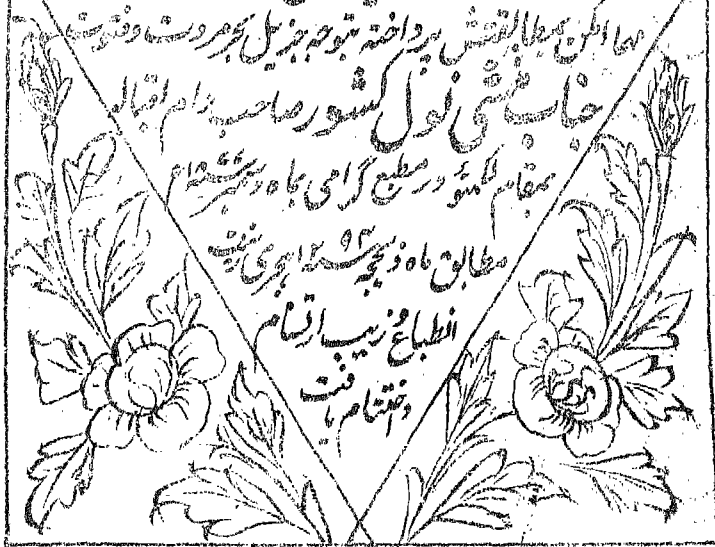 مهما امکن بمطابقتش پرداخته بتوجه جزیل بحر مروت و فتوت
جناب منشی نول کشور صاحب دام اقباله
بمقام لکهنؤ در مطبع گرامی بماه دسمبر
مطابق ماه ذیحجه ۱۲۹۲ هجری زینت
انطباع و زیب ارتسام
و اختتام یافت